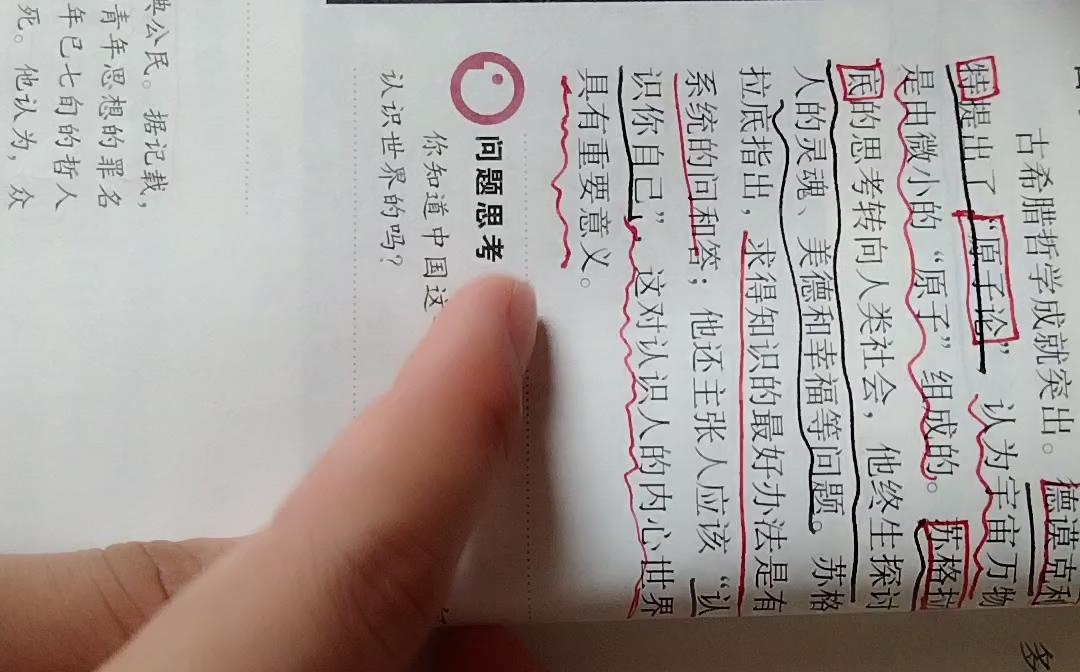 古希腊哲学成就突出。德谟克利
特提出了“原子论”，认为宇宙万物
是由微小的“原子”组成的。苏格拉
底的思考转向人类社会，他终生探讨
人的灵魂、美德和幸福等问题。苏格
拉底指出，求得知识的最好办法是有
系统的问和答；他还主张人应该“认
识你自己”，这对认识人的内心世界
具有重要意义。
问题思考
你知道中国这
认识世界的吗？
典公民。据记载，
青年思想的罪名
年已七旬的哲人
死。他认为，众